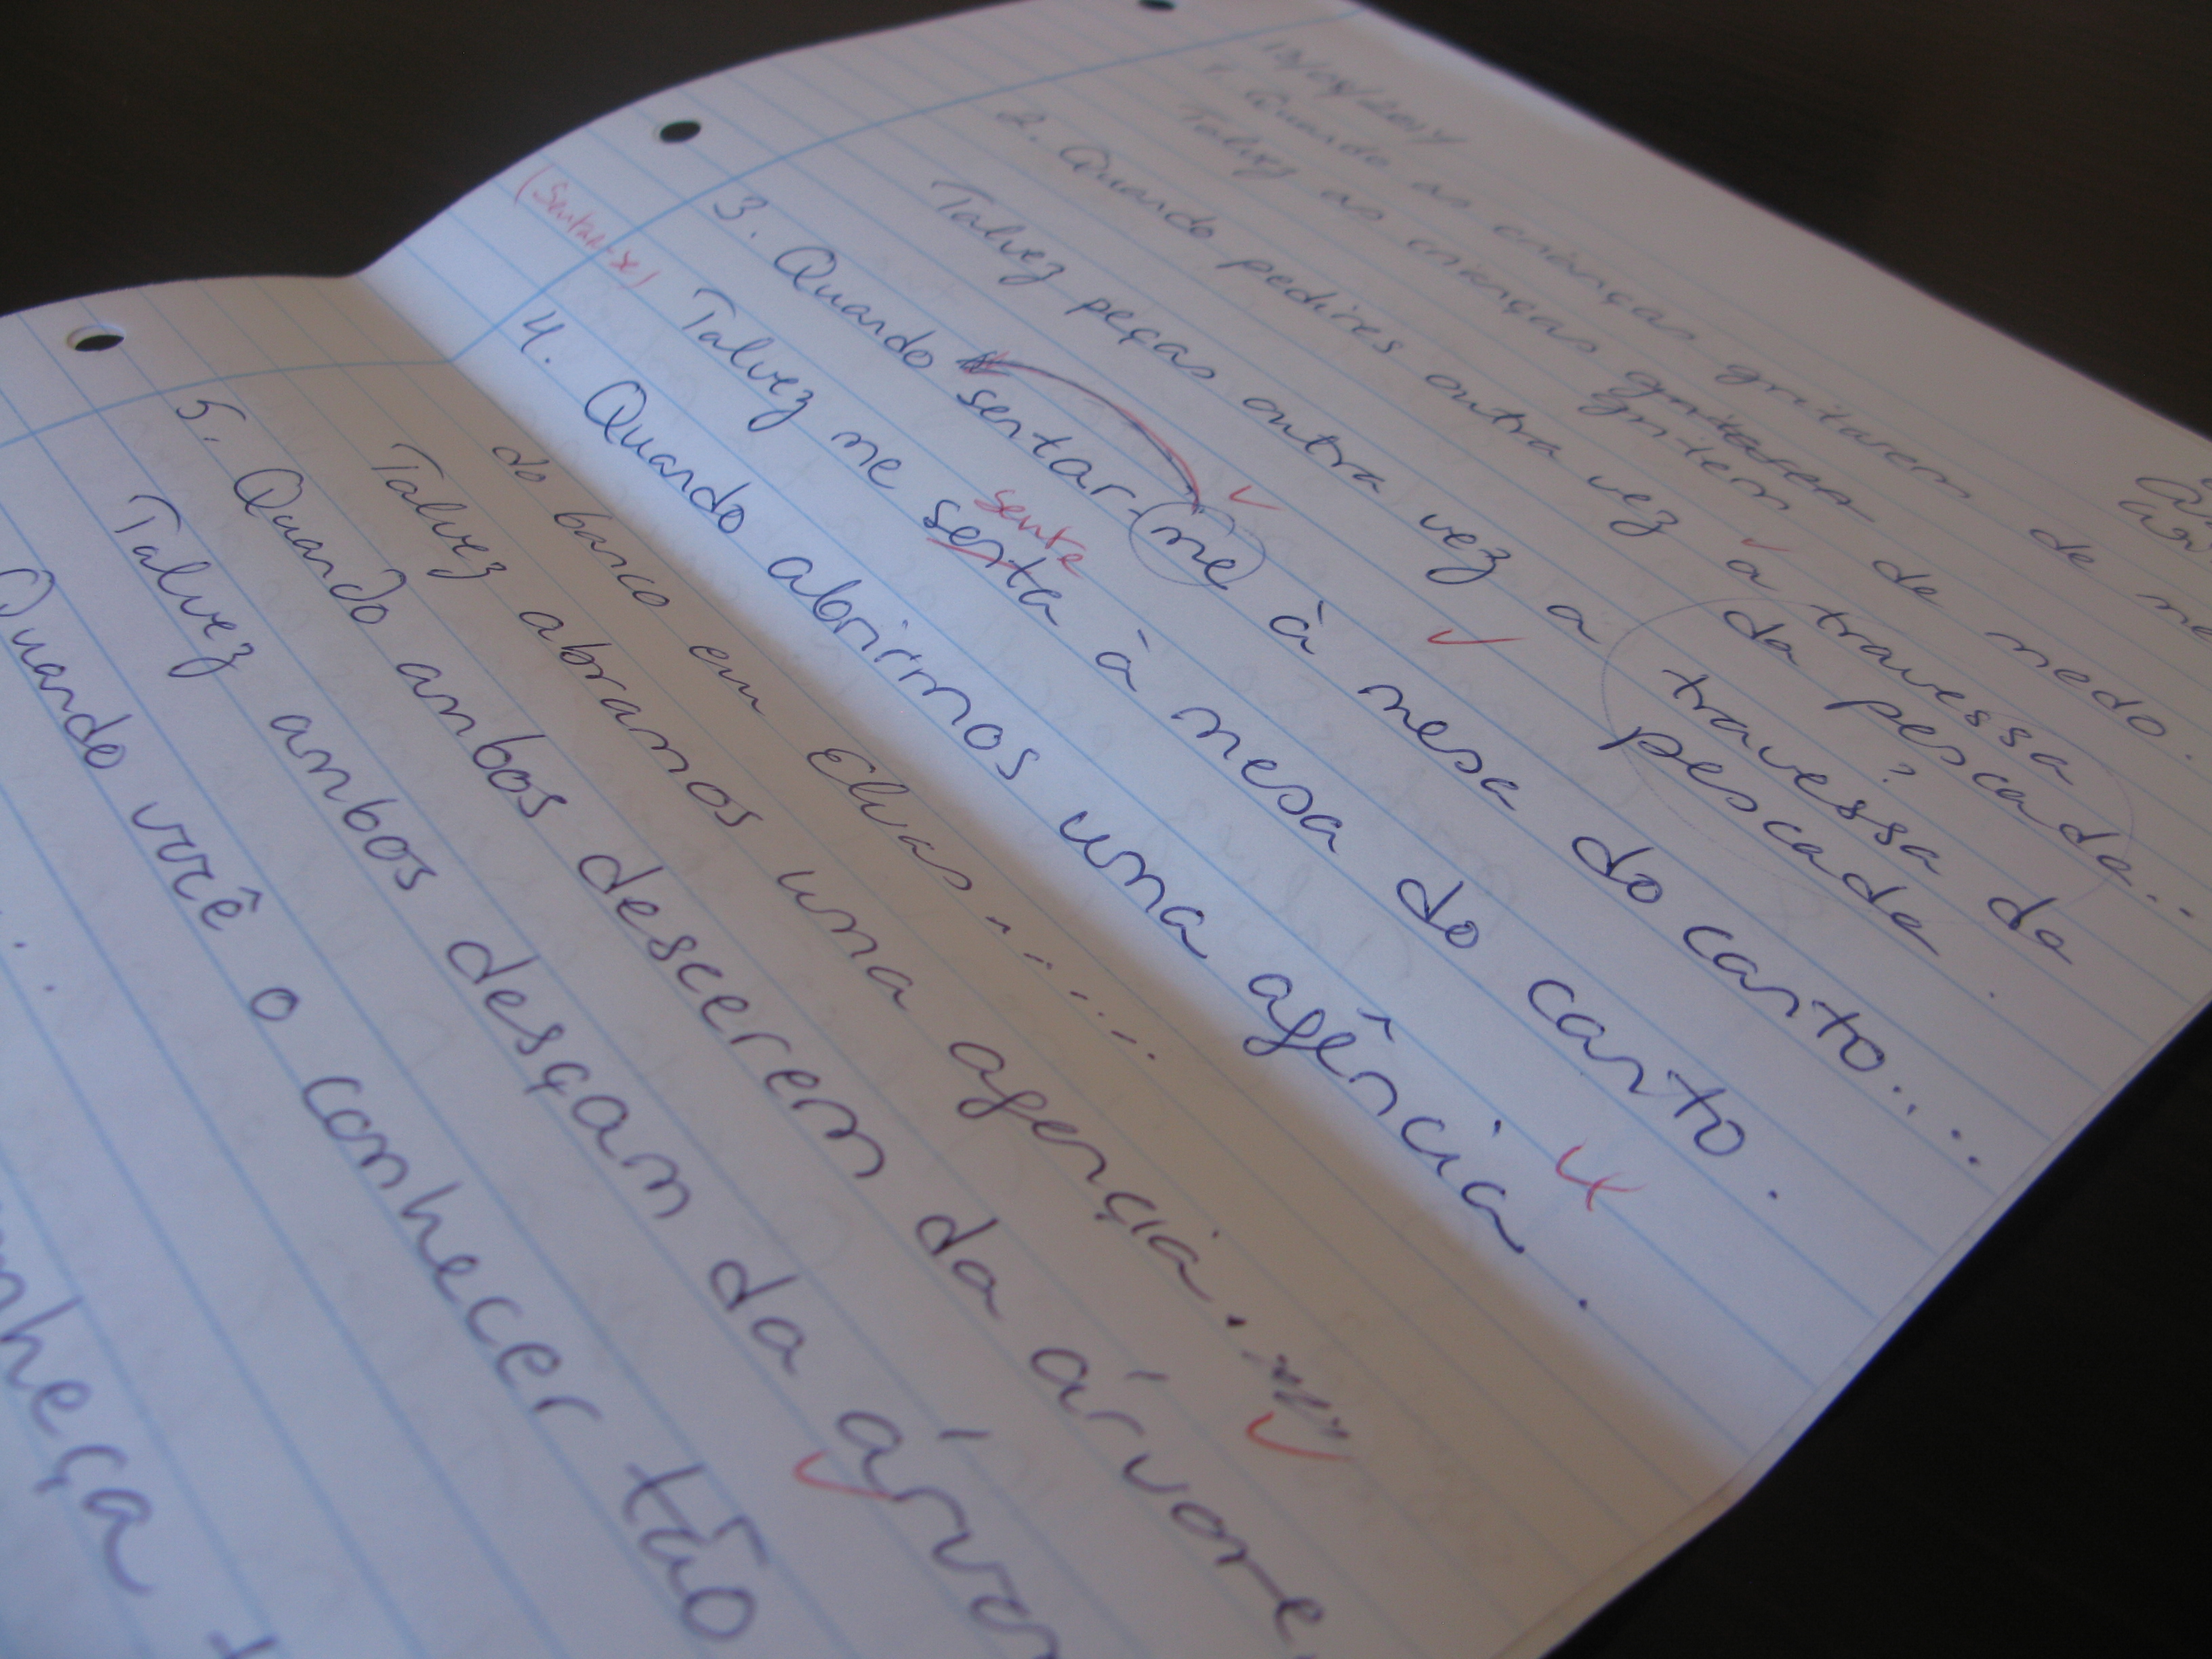 1. Quando as crianças gritarem de
Talvez as crianças gritem de medo.
2. Quando pedires outra vez a travessa
da pescada...
Talvez peças outra vez a travessa da
pescada.
3. Quando sentar-me à mesa do canto...
(Sentar-se)
sente
Talvez me senta à mesa do canto.
4. Quando abrirmos uma agência
do banco em Elvas.....
Talvez abramos uma agencia.
5. Quando ambos descerem da árvore
Talvez ambos desçam da
Quando você o conhecer tão